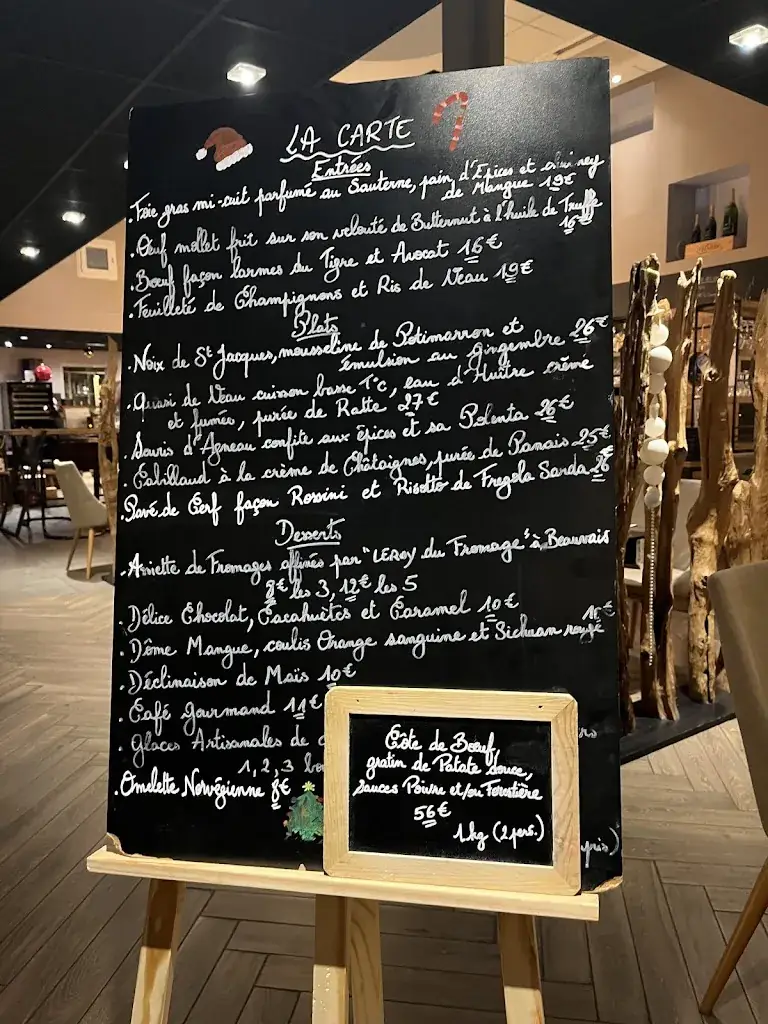 LA CARTE
Entrées
. Foie gras mi-cuit parfumé au Sauterne, pain d'Épices et chutney
de Mangue 19€
. Œuf mollet frit sur son velouté de Butternut à l'huile de Truffe
16€
. Bœuf façon larmes du Tigre et Avocat 16€
. Feuilleté de Champignons et Ris de Veau 19€
Plats
. Noix de St Jacques, mousseline de Potimarron et
émulsion au gingembre 26€
. Quasi de Veau cuisson basse T°c, eau d'Huître crème
et fumée, purée de Ratte 27€
. Souris d'Agneau confite aux épices et sa Polenta 26€
. Cabillaud à la crème de Châtaignes, purée de Panais 25€
. Pavé de Cerf façon Rossini et Risotto de Fregola Sarda 26€
Desserts
. Assiette de Fromages affinés par "LEROY du Fromage" à Beauvais
8€ les 3, 12€ les 5
. Délice Chocolat, Cacahuètes et Caramel 10€
. Dôme Mangue, coulis Orange sanguine et Sichuan rouge
. Déclinaison de Maïs 10€
. Café gourmand 11€
. Glaces Artisanales de
1, 2, 3
. Omelette Norvégienne 8€
Côte de Bœuf,
gratin de Patate douce,
sauces Poivre et/ou Forestière
56€
1kg (2 pers.)